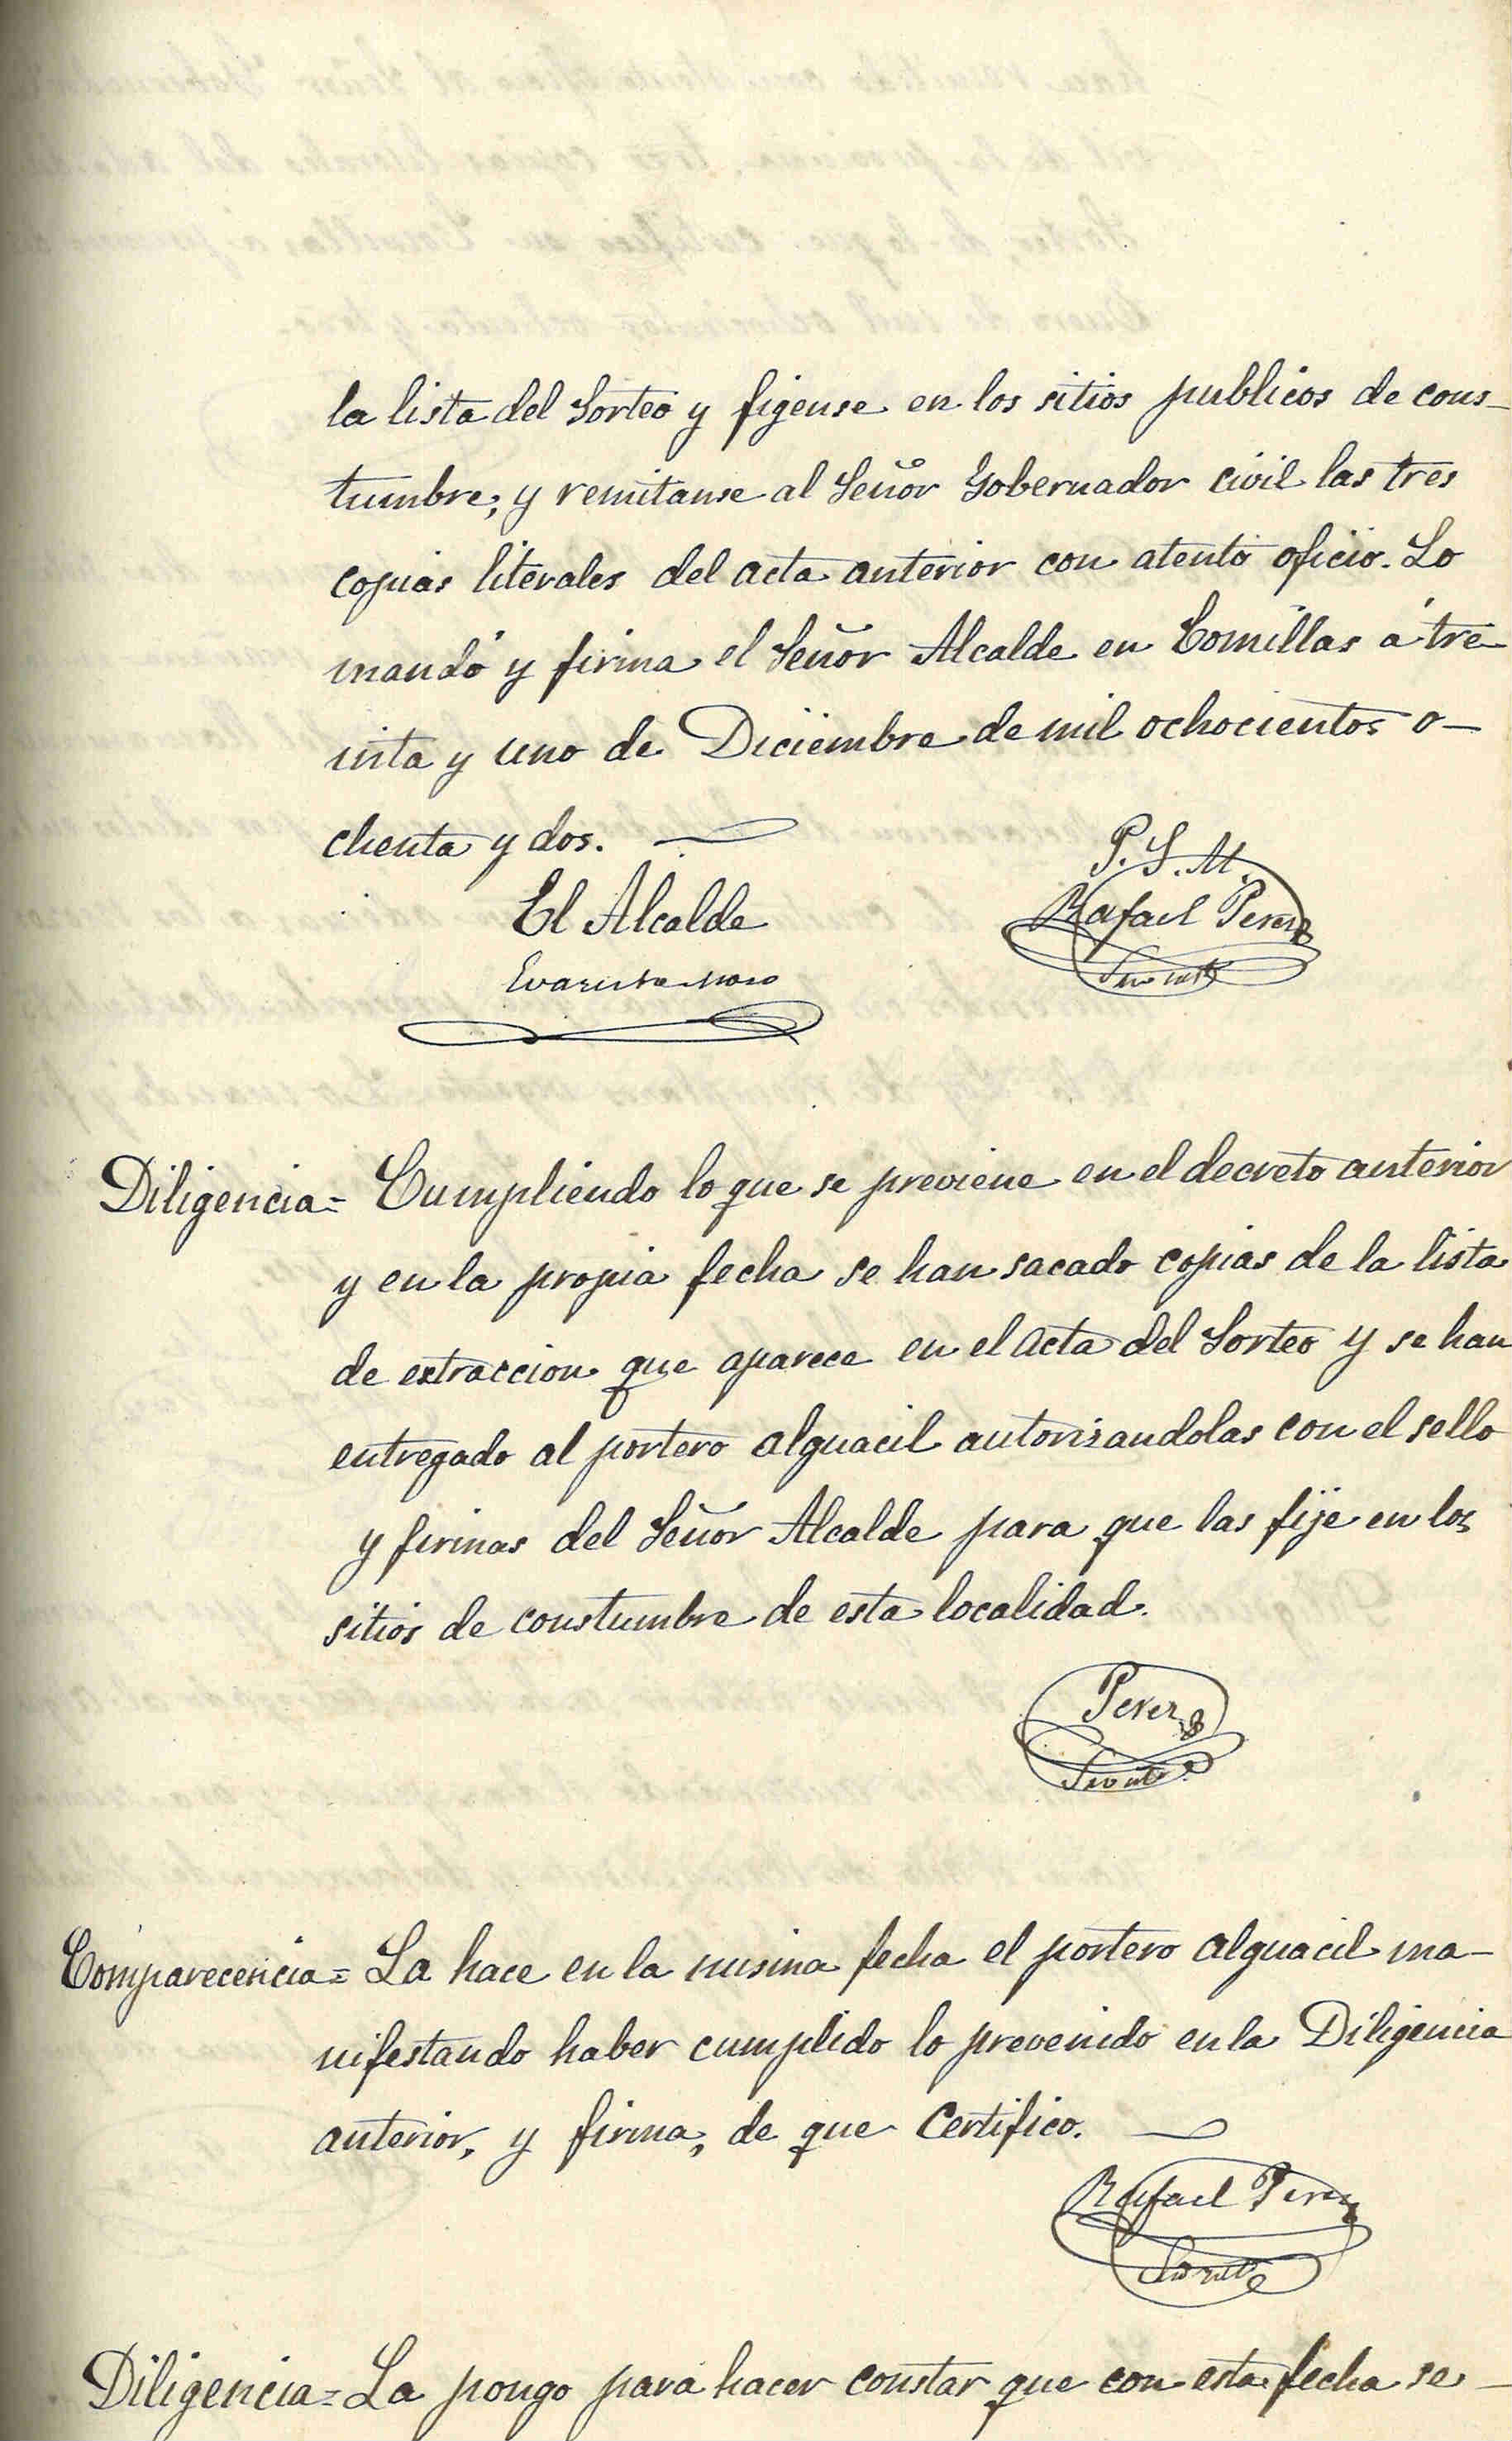 la lista del Sorteo y figense en los sitios publicos de cons-
tumbre; y remitanse al Señor Gobernador civil las tres
copias literales del acta anterior con atento oficio. Lo
mandó y firma el Señor Alcalde en Comillas á tre-
inta y uno de Diciembre de mil ochocientos o-
chenta y dos.
P. S. M.
El Alcalde
Rafael Perez
Evaristo
Diligencia = Cumpliendo lo que se previene en el decreto anterior
y en la propia fecha se han sacado copias de la lista
de extraccion que aparece en el acta del Sorteo y se han
entregado al portero alguacil autorizandolas con el sello
y firmas del Señor Alcalde para que las fije en los
sitios de constumbre de esta localidad.
Perez
Comparecencia = La hace en la misma fecha el portero alguacil ma-
nifestando haber cumplido lo prevenido en la Diligencia
anterior, y firma, de que Certifico.
Rafael Perez
Diligencia = La pongo para hacer constar que con esta fecha se